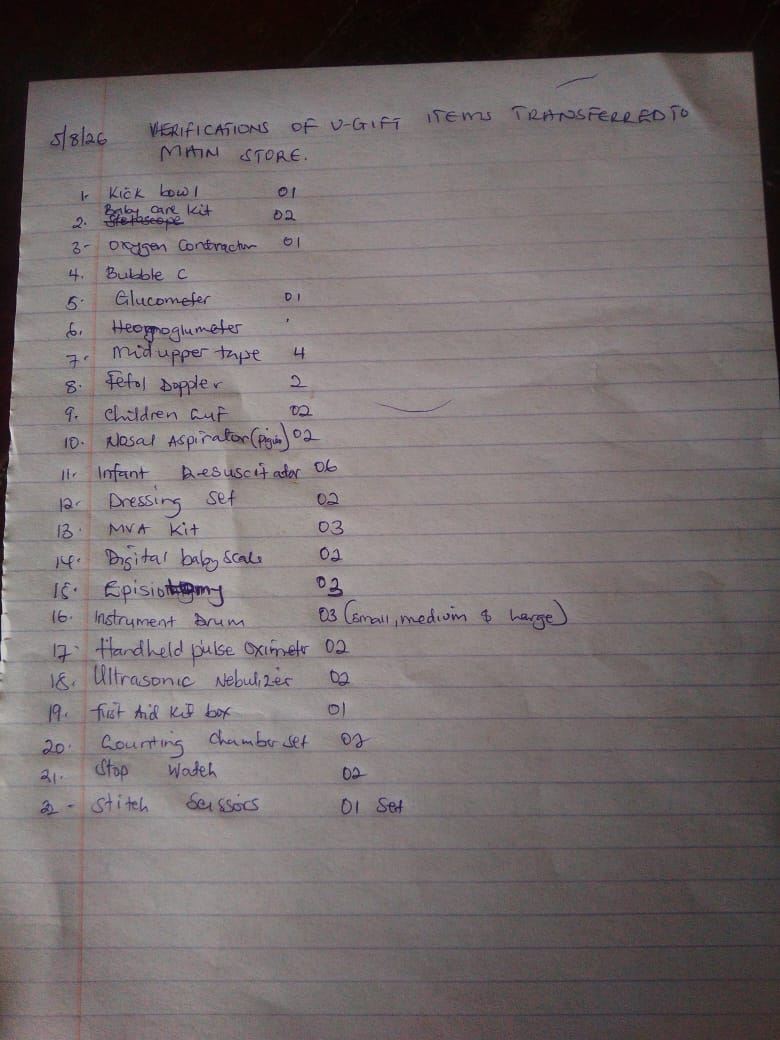 5/8/26 VERIFICATIONS OF U-GIFT ITEMS TRANSFERRED TO
MAIN STORE.
1. Kick bowl 01
2. Baby care kit 02
3- Oxygen Contractor 01
4. Bubble C
5. Glucometer 01
6.
7. Mid upper tape 4
8. Fetol Doppler 2
9. Children Cuf 02
10. Nasal Aspirator 02
11. Infant Resuscitador 06
12. Dressing Set 02
13. MVA Kit 03
14. Digital baby Scale 02
15. Episiotomy 03
16. Instrument Drum 03 (Small, medium & Large)
17. Handheld pulse Oximeter 02
18. Ultrasonic Nebulizer 02
19. First Aid Kit box 01
20. Counting Chamber set 02
21. Stop Watch 02
22 - Stitch Scissors 01 Set